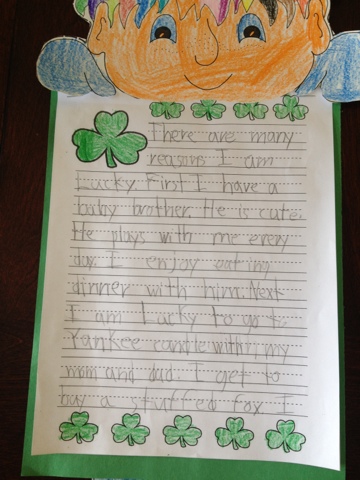 There are many
reasons I am
Lucky. First I have a
baby brother. He is cute.
He plays with me every
day. I enjoy eating
dinner with him. Next
I am Lucky to go to
Yankee candle with my
mom and dad. I get to
buy a stuffed fox I